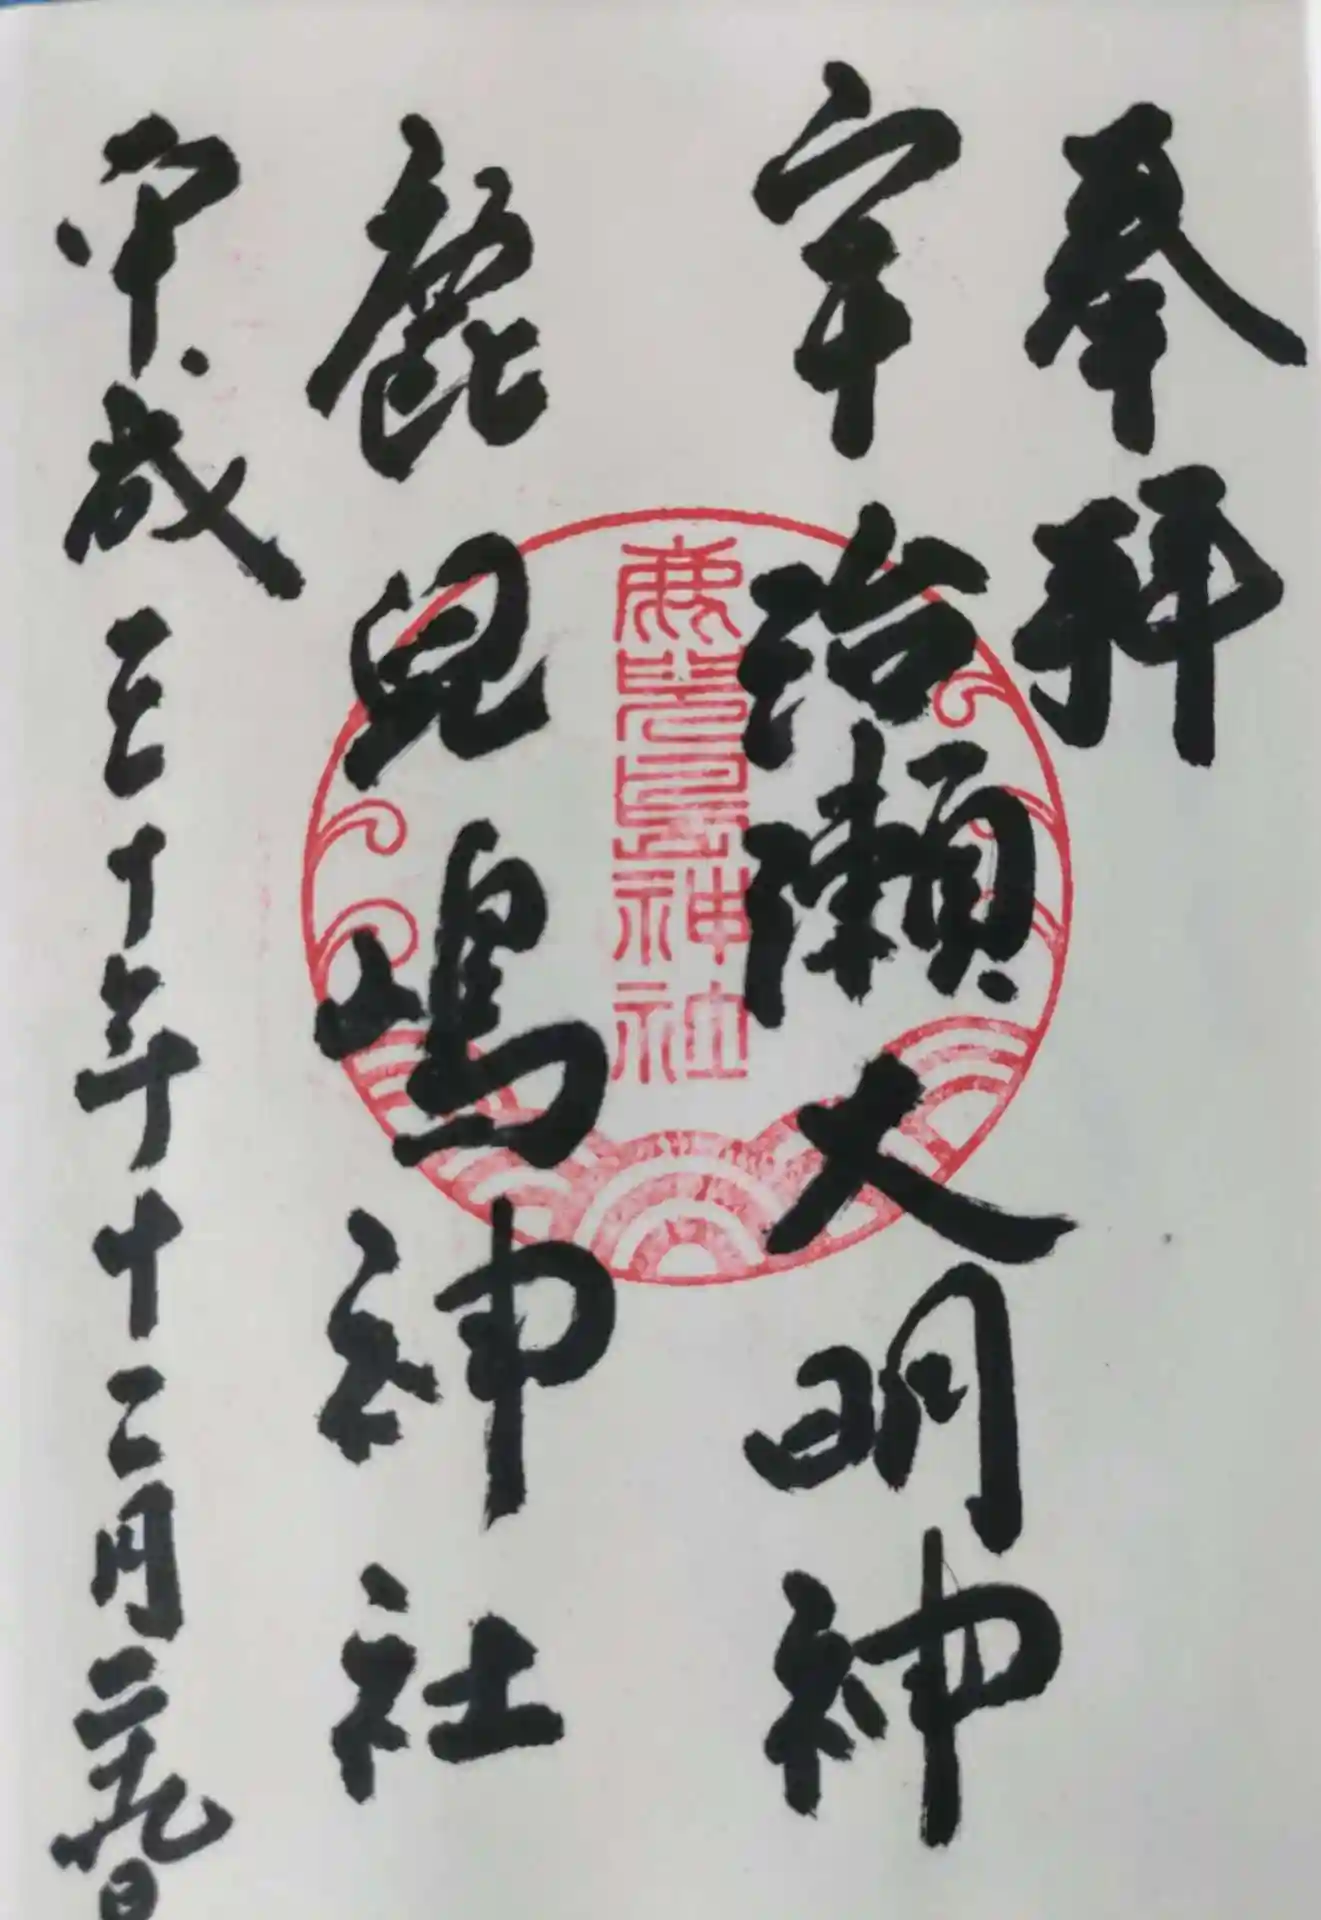 奉拝
宇治瀬大明神
鹿兒島神社
鹿兒嶋神社
平成三十年十二月二十九日